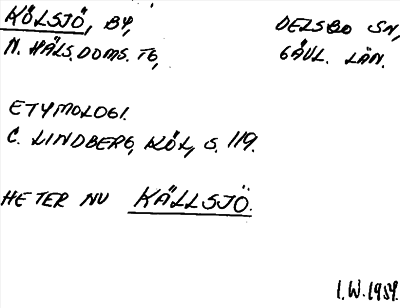 KÖLSJÖ, BY, DELSBO SN,
N. HÄLS. DOMS. TG, GÄVL. LÄN.
ETYMOLOGI.
C. LINDBERG, KÖL, S. 119.
HETER NU KÄLLSJÖ.
I.W. 1959.